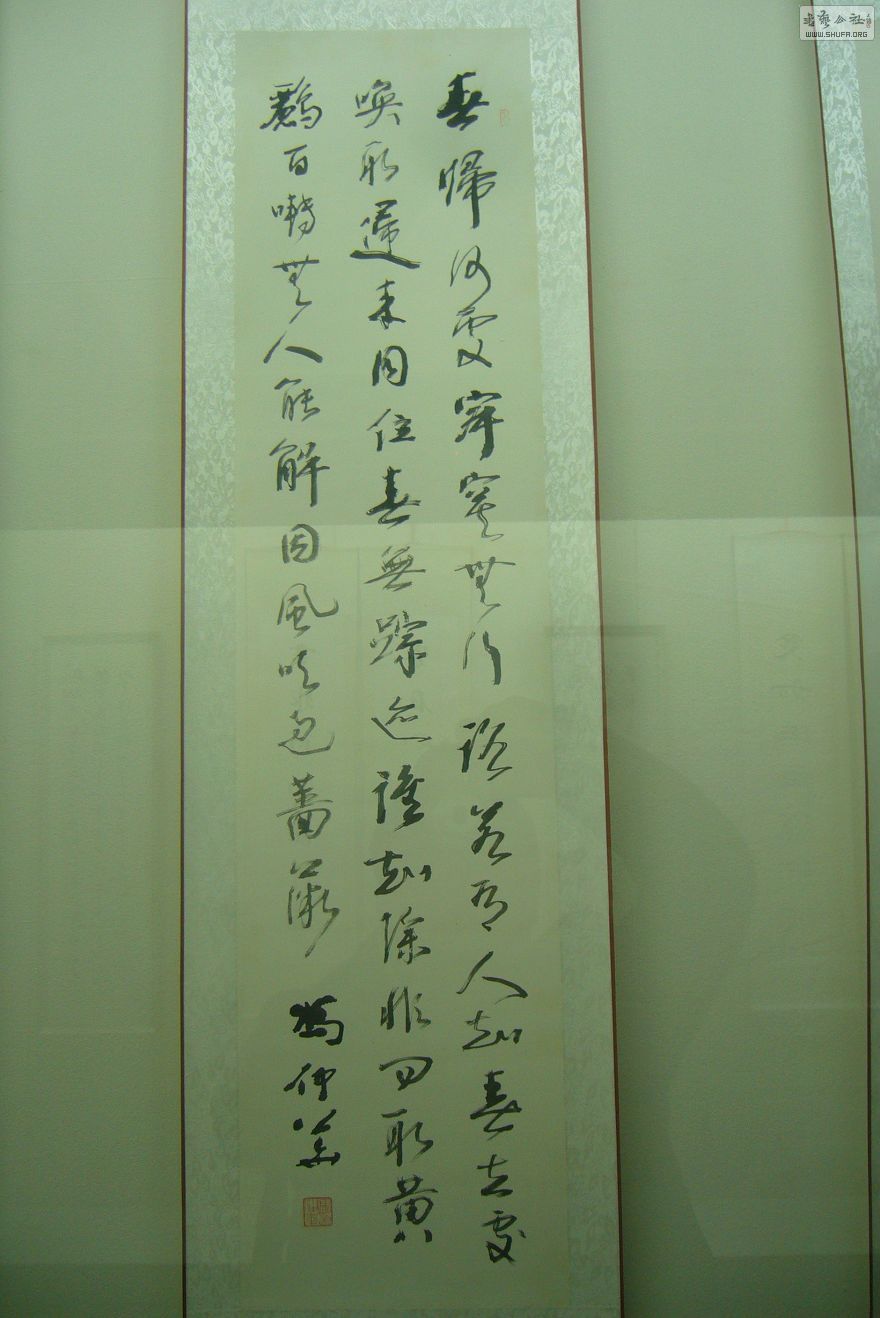 春歸何處寂寞無行路若有人知春去處
喚取歸來同住春無踪迹誰知除非問取黃
鸝百囀無人能解因風吹過薔薇 馮仲
書藝公社
WWW.SHUFA.ORG